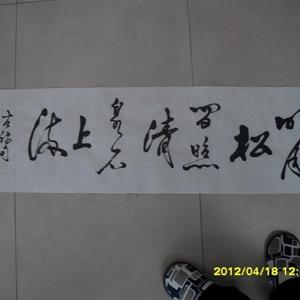 明月松间照清泉石上流
古诗句
2012/04/18 12: